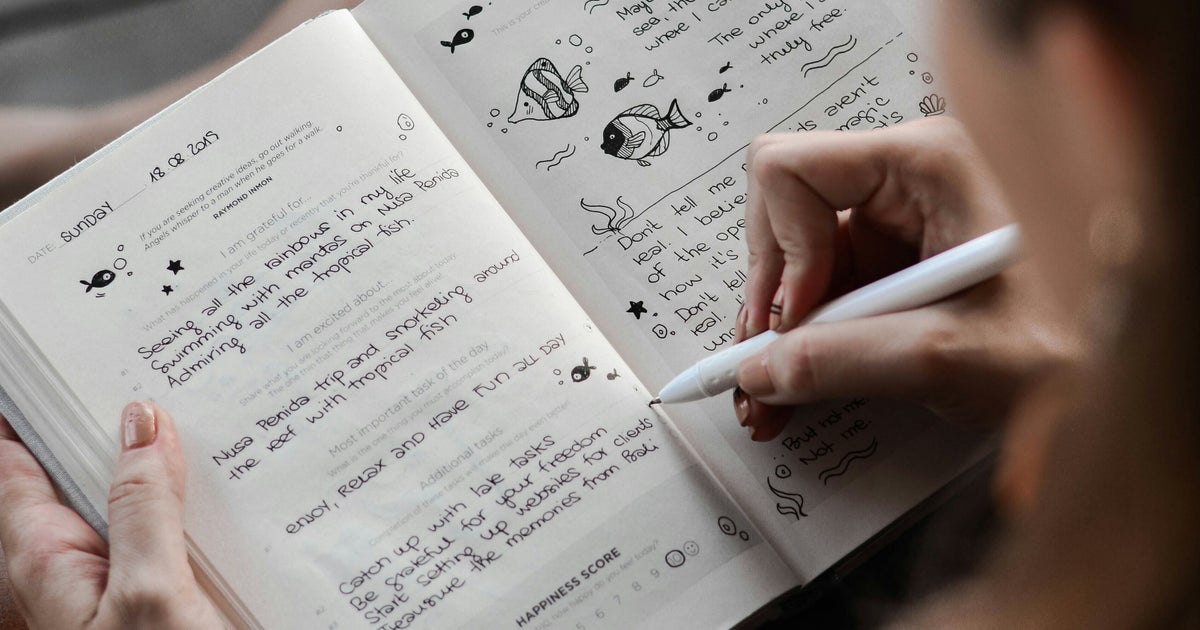 DATE: SUNDAY 18.08.2019
If you are seeking creative ideas, go out walking.
Angels whisper to a man when he goes for a walk.
RAYMOND INMON
I am grateful for...
What has happened in your life today or recently that you're thankful for?
Seeing all the rainbows in my life
Swimming with mantas on Nusa Penida
Admiring all the tropical fish.
I am excited about...
Share what you are looking forward to the most about today
The one thing that makes you feel alive!
Nusa Penida trip and snorkeling around
the reef with tropical fish
Most important task of the day
What is the one thing you must accomplish today?
ENJOY, RELAX AND HAVE FUN ALL DAY
Additional tasks
Completion of these tasks will make the day even better!
Catch up with late tasks
Be grateful for your freedom
Start setting up websites for clients
Treasure the memories from Bali
HAPPINESS SCORE
how happy do you feel today?
5 6 7 8 9 10
This is your
sea, the
where I
The only
where I
truly free.
aren't
magic
Don't tell me
real. I believe
of the
how it's
Don't tell
real.
But not me.
Not me.